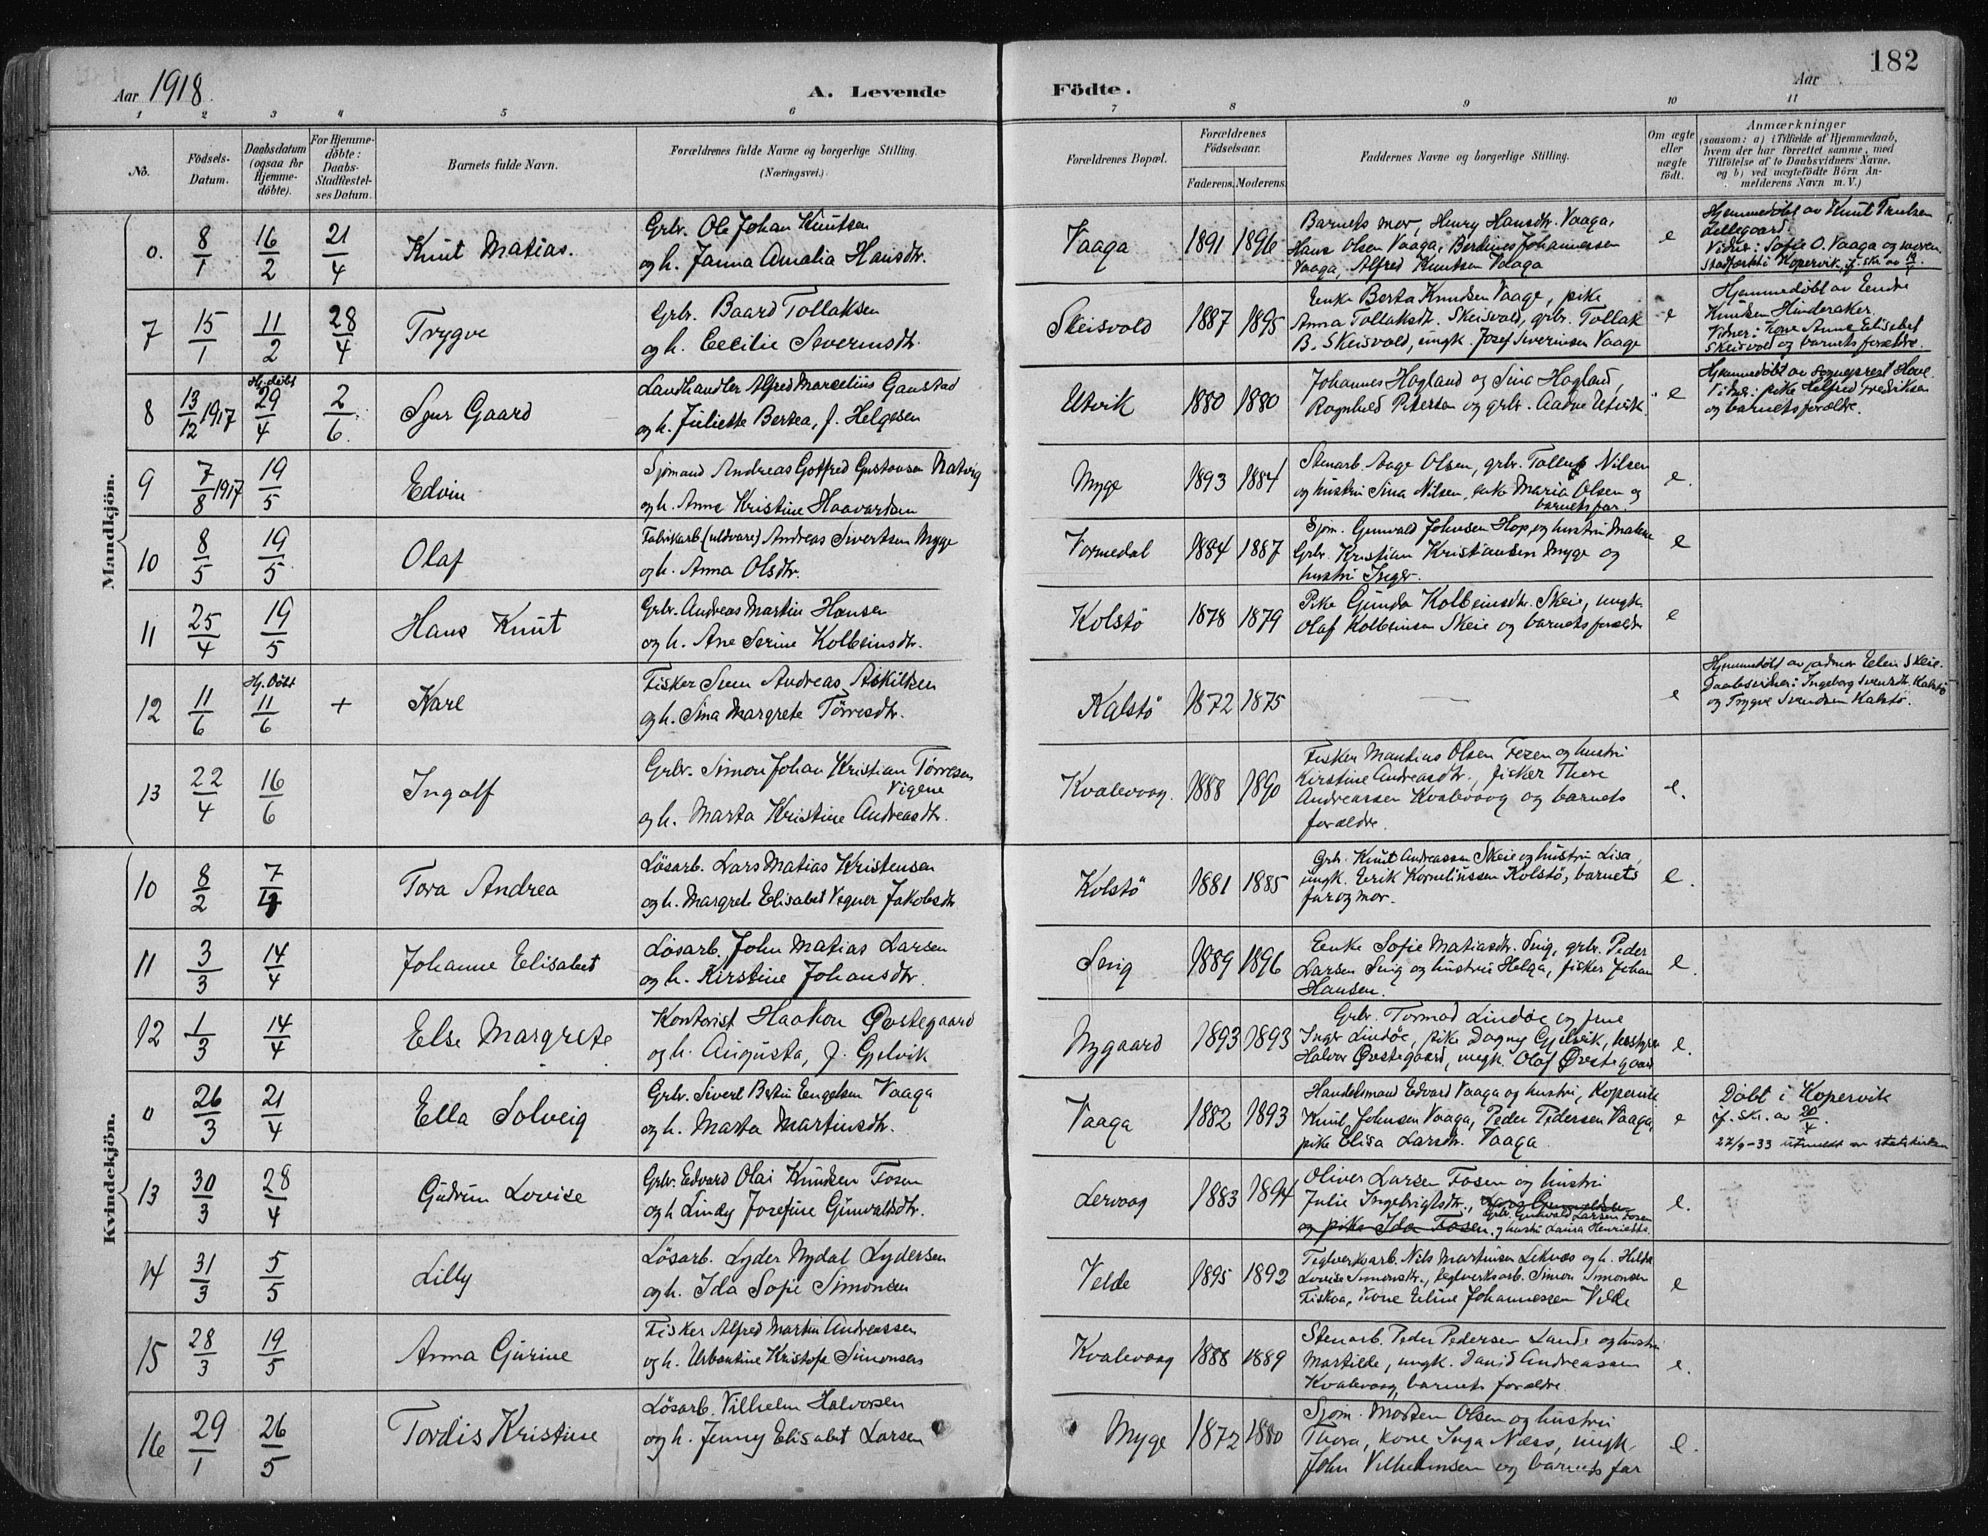 182
Aar 1918.
A. Levende Födte.
Aar
1 2 3 4 5 6 7 8 9 10 11
No.
Födsels-Datum.
Daabsdatum (ogsaa for Hjemme-döbte).
For Hjemme-döbte: Daabs-Stadfæstel-ses Datum.
Barnets fulde Navn.
Forældrenes fulde Navne og borgerlige Stilling. (Næringsvei.)
Forældrenes Bopæl.
Forældrenes Födselsaar.
Faderens. Moderens.
Faddernes Navne og borgerlige Stilling.
Om ægte eller uægte födt.
Anmærkninger
(saasom: a) i Tilfælde af Hjemmedaab, hvem der har forrettet samme, med Tilföielse af to Daabsvidners Navne, og b) ved uægtefödte Börn Anmelderens Navn m. V.)
Mandkjön.
0. 8/1 16/2 21/4 Knut Matias.
Grbr. Ole Johan Knutsen
og h. Janna Amalia Hansdtr.
Vaaga 1891 1896
Barnets mor, Henry Hansdtr. Vaaga,
Hans Olsen Vaaga, Berdines Johannessen
Vaaga, Alfred Knutsen Vaaga
e
Hjemmedøbt av Knut Trulsen
Lillegaard
Vidner: Sofie O. Vaaga og moren
Stadfæstet i Kopervik
7 15/1 11/2 28/4 Trygve
Grbr. Baard Tollaksen
og h. Cecilie Severinsdtr.
Skeisvold 1887 1895
Enke Berta Knudsen Vaage, pike
Anna Tollaksdtr. Skeisvold, grbr. Tollak
B. Skeisvold, ungk. Josef Severinsen Vaage
e
Hjemmedøbt av Endre
Knutsen Hinderaker.
Vidner: Kone Anne Elisabet
Skeisvold og barnets forældre.
8 13/12 1917 Hj. døbt 29/4 2/6 Sjur Gaard
Landhandler Alfred Marcelius Gaustad
og h. Juliette Bertea, f. Helgesen
Utvik 1880 1880
Johannes Hogland og Sina Hogland,
Ragnhild Petersen og grbr. Aadne Utvik
e
Hjemmedøbt av sogneprest Hove.
Vidner: pike Helfred Fredriksen
og barnets forældre.
9 7/8 1917 19/5 Edvin
Sjømand Andreas Gotfred Gustavsen Natvig
og h. Anne Kristine Haavardsen
Myge 1893 1884
Stenarb. Aage Olsen, grbr. Tollef Nilsen
og hustri Sina Nilsen, enke Maria Olsen og
barnets far.
e.
10 8/5 19/5 Olaf
Fabrikarb. (uldvare) Andreas Sivertsen Myge
og h. Anna Olsdtr.
Vormedal 1884 1887
Sjøm. Gunvald Johnsen Hop og hustri Malene
Grbr. Kristian Kristiansen Myge og
hustri Inger.
e
11 25/4 19/5 Hans Knut
Grbr. Andreas Martin Hansen
og h. Ane Serine Kolbeinsdtr.
Kolstö 1878 1879
Pike Gunda Kolbeinsdtr. Skeie, ungk.
Olaf Kolbeinsen Skeie og barnets forældre
e
12 11/6 Hj. Døbt 11/6 + Karl
Fisker Sven Andreas Askildsen
og h. Sina Margrete Törresdtr.
Kalstö 1872 1875
—
e
Hjemmedøbt av jordmor Elen Skeie.
Daabsvidner: Ingeborg Svendsdtr. Kalstø
og Trygve Svendsen Kalstø.
13 22/4 16/6 Ingolf
Grbr. Simon Johan Kristian Tørresen
Vigene
og h. Marta Kristine Andreasdtr.
Kvalevaag. 1888 1890
Fisker Mandius Olsen Feøen og hustri
Kirstine Andreasdtr., fisker Thore
Andreassen Kvalevaag og barnets
forældre.
e.
Kvindekjön.
10 8/2 7/4 Tora Andrea
Løsarb. Lars Matias Kristensen
og h. Margrete Elisabet Vegner Jakobsdtr
Kolstö 1881 1885
Grbr. Knut Andreassen Skeie og hustri Lisa,
ungk. Erik Korneliussen Kolstö, barnets
far og mor.
e.
11 3/3 14/4 Johanne Elisabet
Løsarb. John Matias Larsen
og h. Kirstine Johansdtr.
Snig 1889 1896
Enke Sofie Matiasdtr. Snig, grbr. Peder
Larsen Snig og hustri Helga, fisker Johan
Hansen.
e.
12 1/3 14/4 Else Margrete
Kontorist Haakon Øvstegaard
og h. Augusta, f. Gjelvik
Nygaard 1893 1893
Grbr. Tormod Lindøe og frue
Inger Lindöe, pike Dagny Gjelvik,
Halvor Øvstegaard, ungk. Olaf Øvstegaard
e.
0 26/3 21/4 Ella Solveig
Grbr. Sivert Bertin Engelsen Vaaga
og h. Marta Martinsdtr.
Vaaga 1882 1893
Handelsmand Edvard Vaaga og hustri, Kopervik
Knut Johnsen Vaaga, Peder Pedersen Vaaga,
pike Elisa Larsdtr. Vaaga
e
Døbt i Kopervik
jf. skr. av 20/4.
22/9-33 utmeldt av statskirken
13 30/3 28/4 Gudrun Lovise
Grbr. Edvard Olai Knudsen Fosen
og h. Lindy Josefine Gunvaldsdtr.
Lervaag 1883 1894
Oliver Larsen Fosen og hustri
Julie Ingebrigtsdtr.,
Grbr. Gunvald Larsen Fosen
og pike Ida Fosen. og hustri Laura Henriette.
e.
14 31/3 5/5 Lilly
Løsarb. Lyder Nydal Lydersen
og h. Ida Sofie Simonsen
Velde 1895 1892
Teglverksarb. Nils Martinsen Liknæs og h. Hilda
Lovise Simonsdtr., teglverksarb. Simon Simonsen
Fiskaa, Kone Eline Johannessen Velde
e
15 28/3 19/5 Anna Gurine
Fisker Alfred Martin Andreassen
og h. Urbantine Kristofa Simonsen
Kvalevaag 1888 1889
Stenarb. Peder Pedersen Lande og hustri
Martilde, ungk. David Andreassen
Kvalevaag, barnets forældre.
e.
16 29/1 26/5 Tordis Kristine
Løsarb. Vilhelm Halvorsen
og h. Jenny Elisabet Larsen
Myge 1872 1880
Sjøm. Morten Olsen og hustri
Thora, kone Inga Næss, ungk.
John Vilhelmsen og barnets far
e.